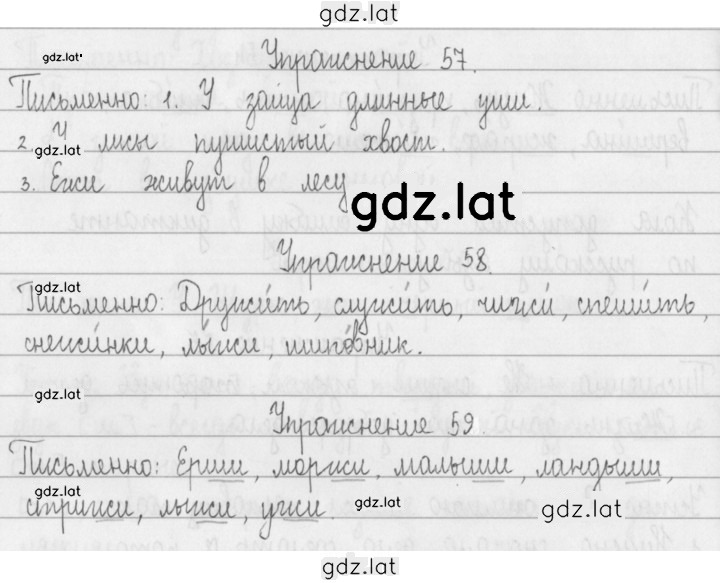 gdz.lat
gdz.lat
Упражнение 57.
Письменно: 1. У зайца длинные уши.
2. У лисы пушистый хвост.
gdz.lat
3. Ежи живут в лесу
gdz.lat
Упражнение 58.
gdz.lat
Письменно: Дружи́ть, служи́ть, чижи́, спеши́ть,
снежи́нки, лы́жи, шипо́вник.
gdz.lat
Упражнение 59
Письменно: Ерши, моржи, малыши, ландыши,
gdz.lat
стрижи, лыжи, ужи.
gdz.lat
gdz.lat
gdz.lat